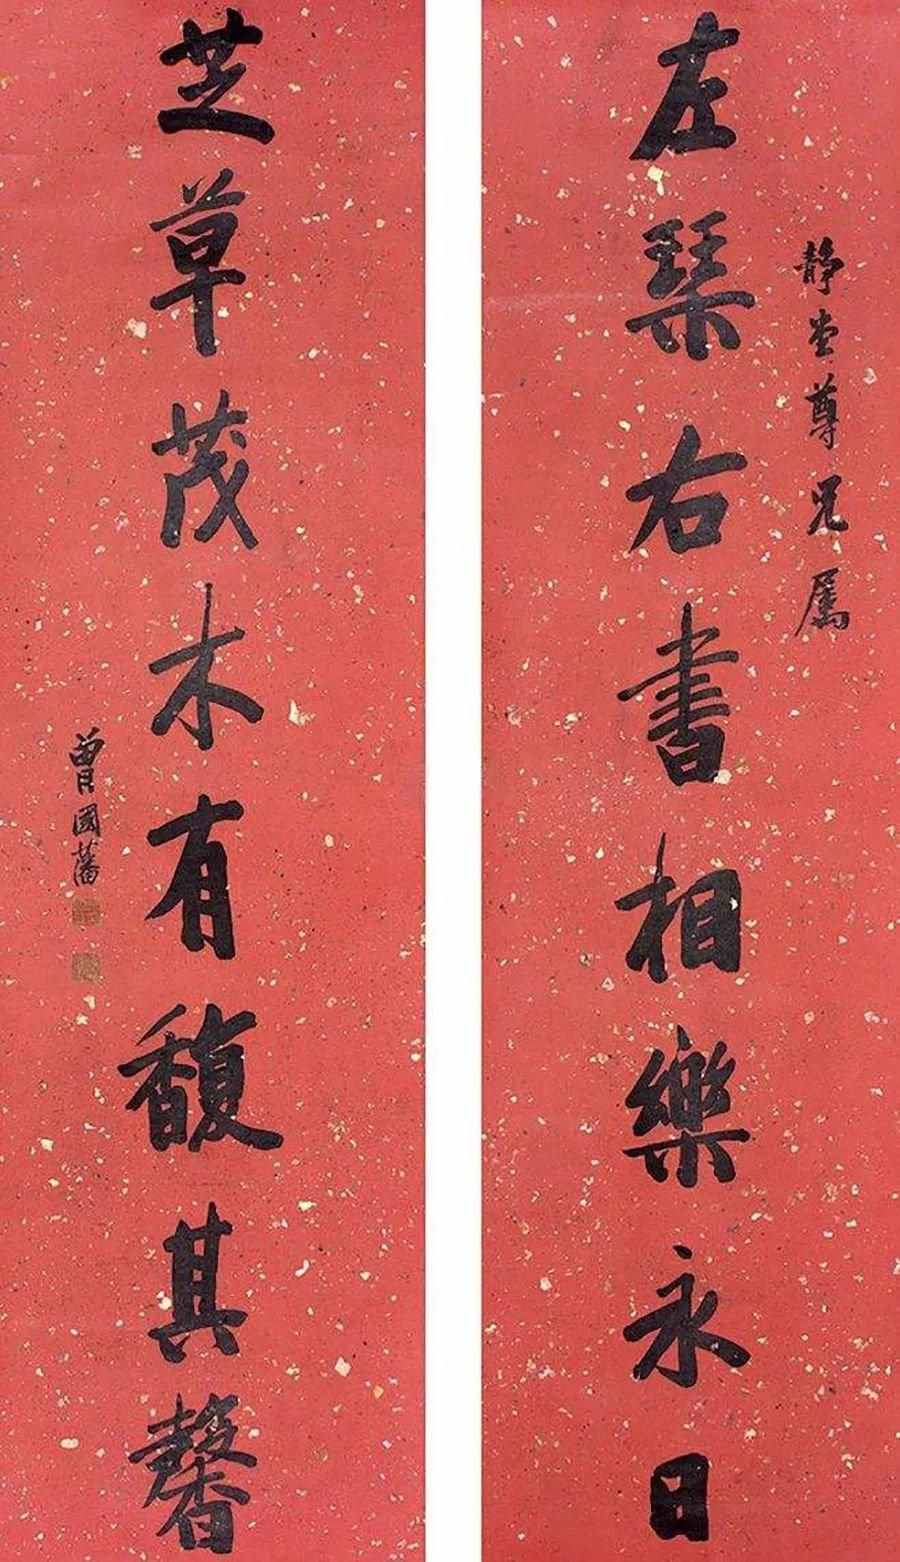 靜堂尊兄屬
左琴右書相樂永日
芝草茂木有馥其馨
曾國藩